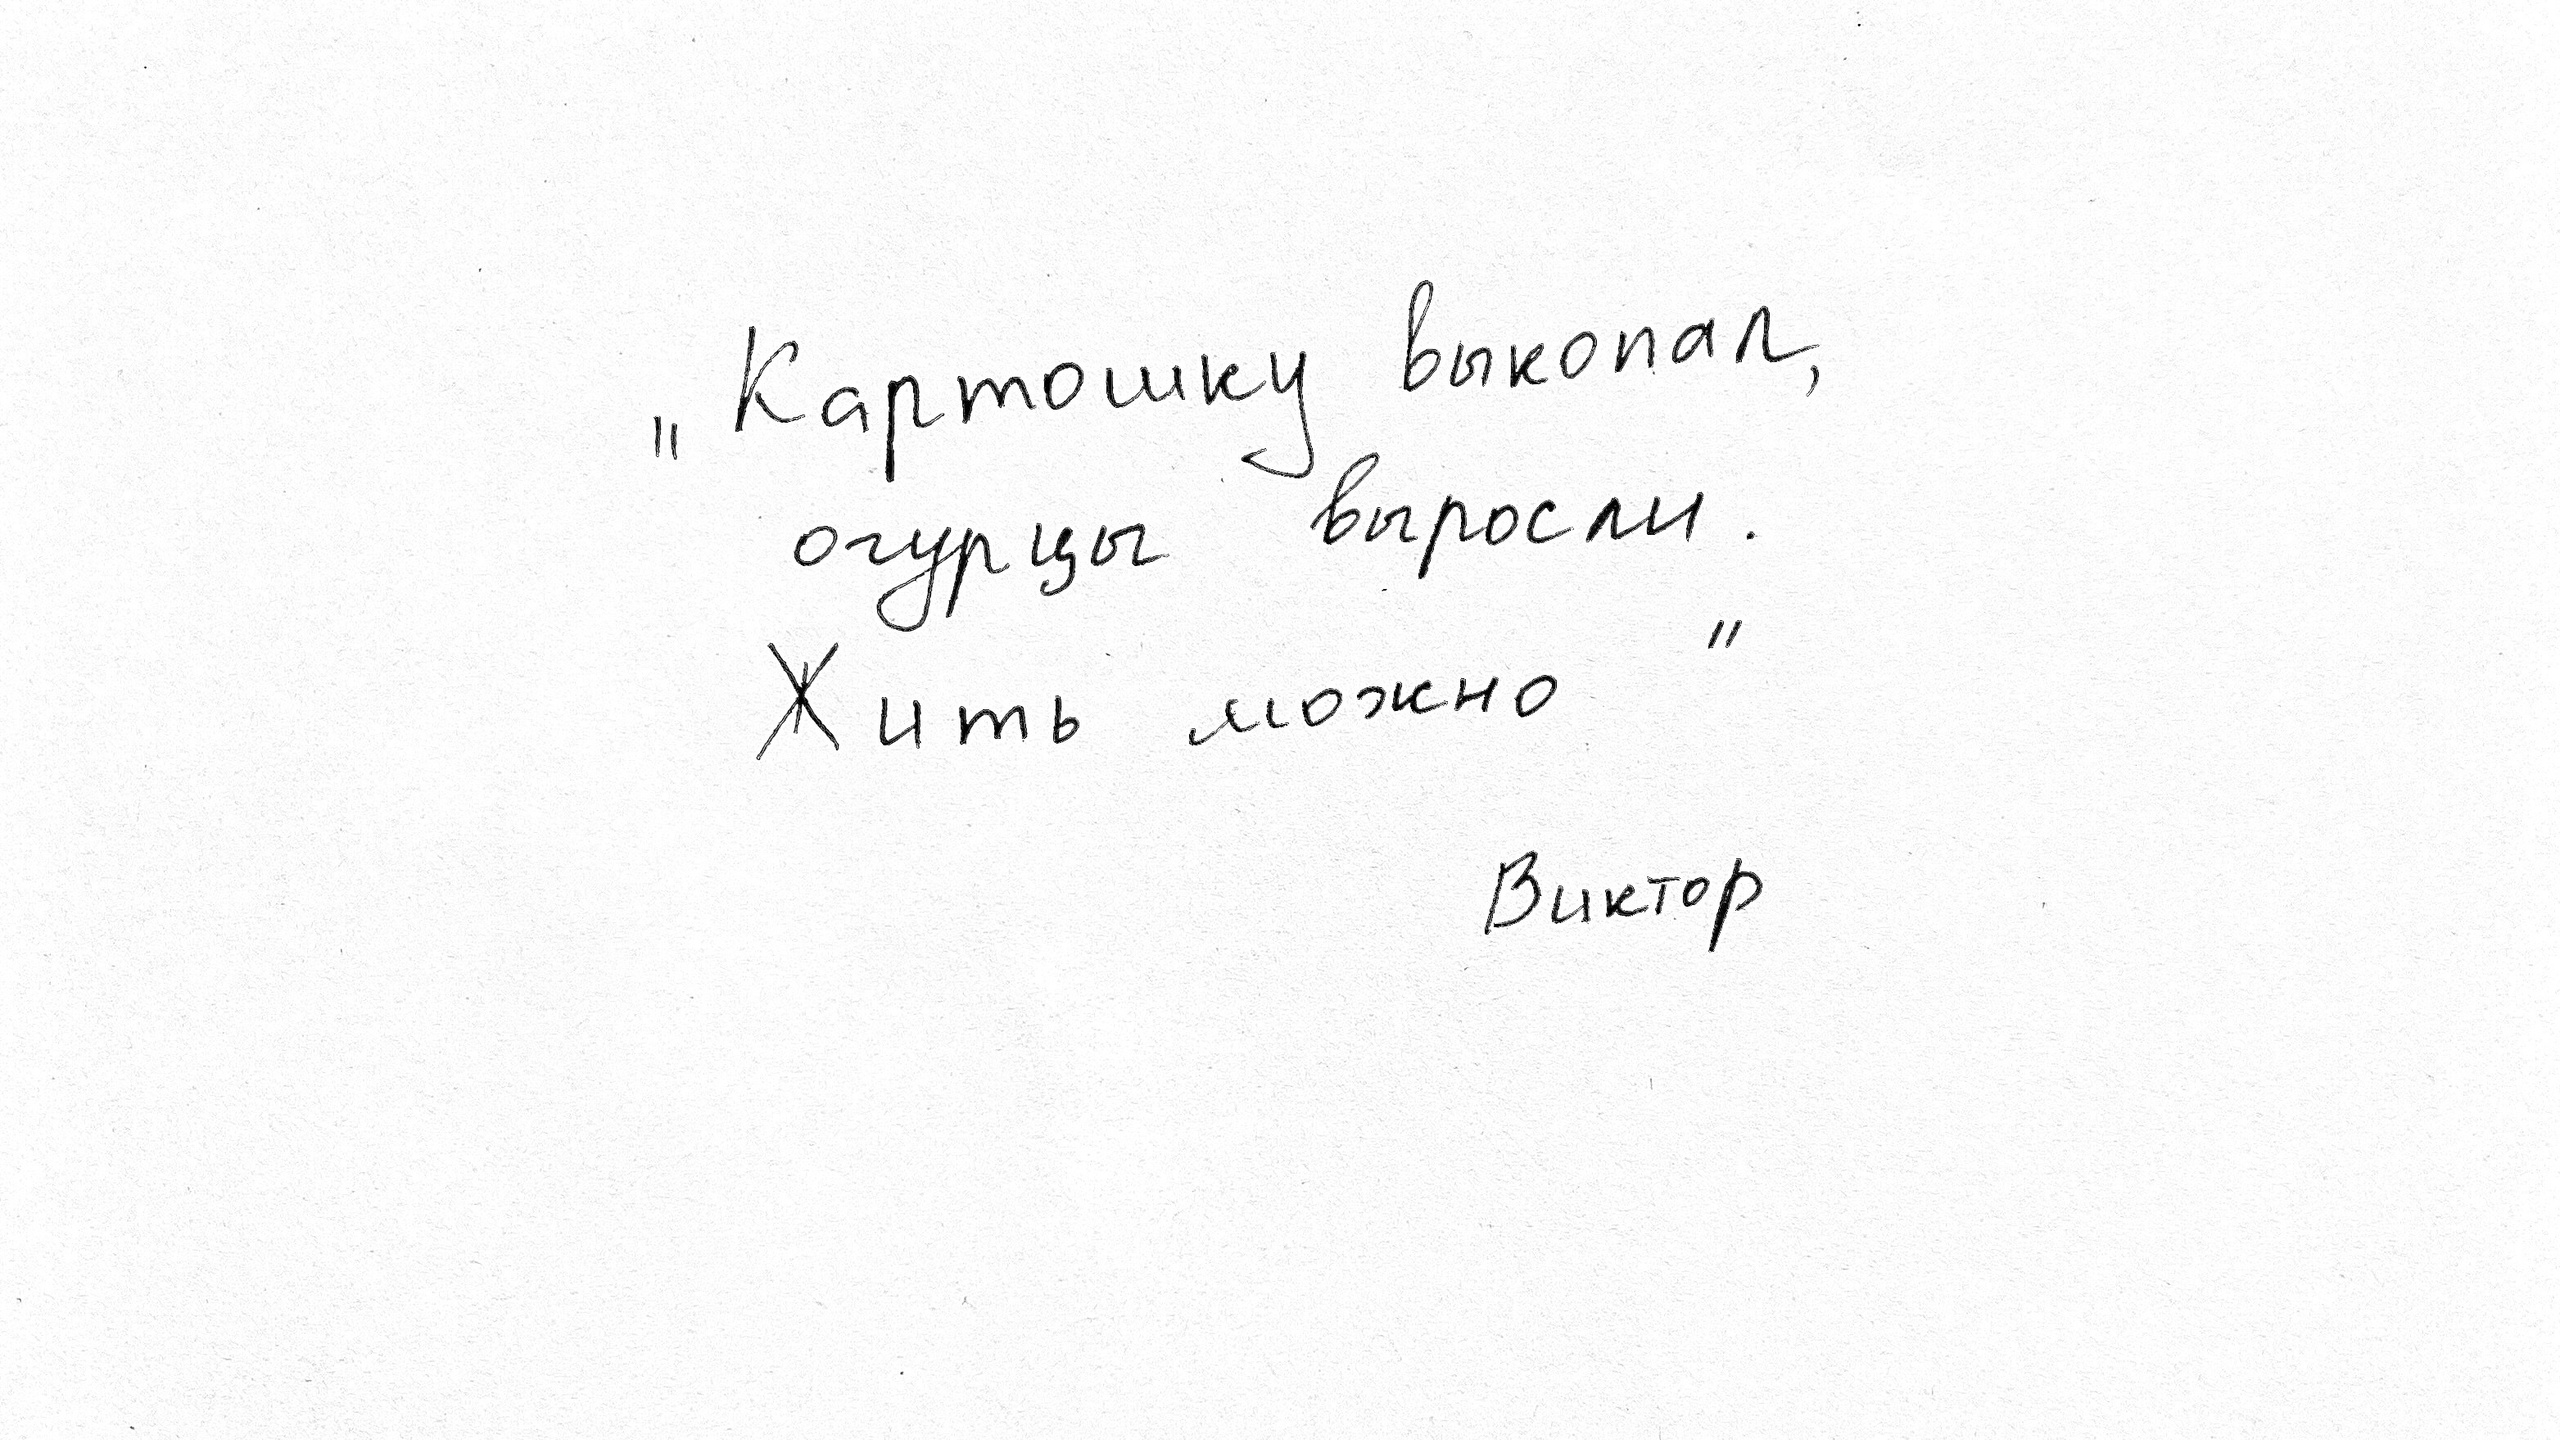 „Картошку выкопал,
огурцы выросли.
Жить можно"
Виктор